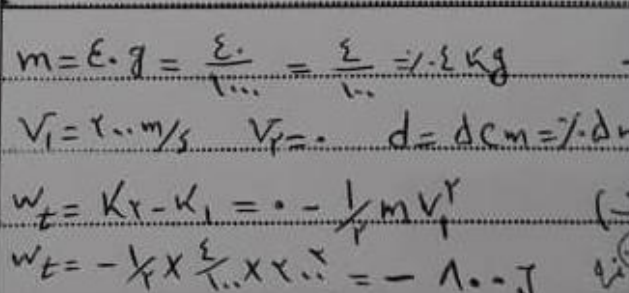 m = ۴۰ g = ۴۰/۱۰۰۰ = ۴/۱۰۰ = ۰/۰۴ kg
V₁ = ۲۰۰ m/s V₂ = ۰ d = ۵ cm = ۰/۰۵
W_t = K₂ - K₁ = ۰ - ۱/۲ m V₁^۲
W_t = - ۱/۲ × ۴/۱۰۰ × ۲۰۰^۲ = - ۸۰۰ J